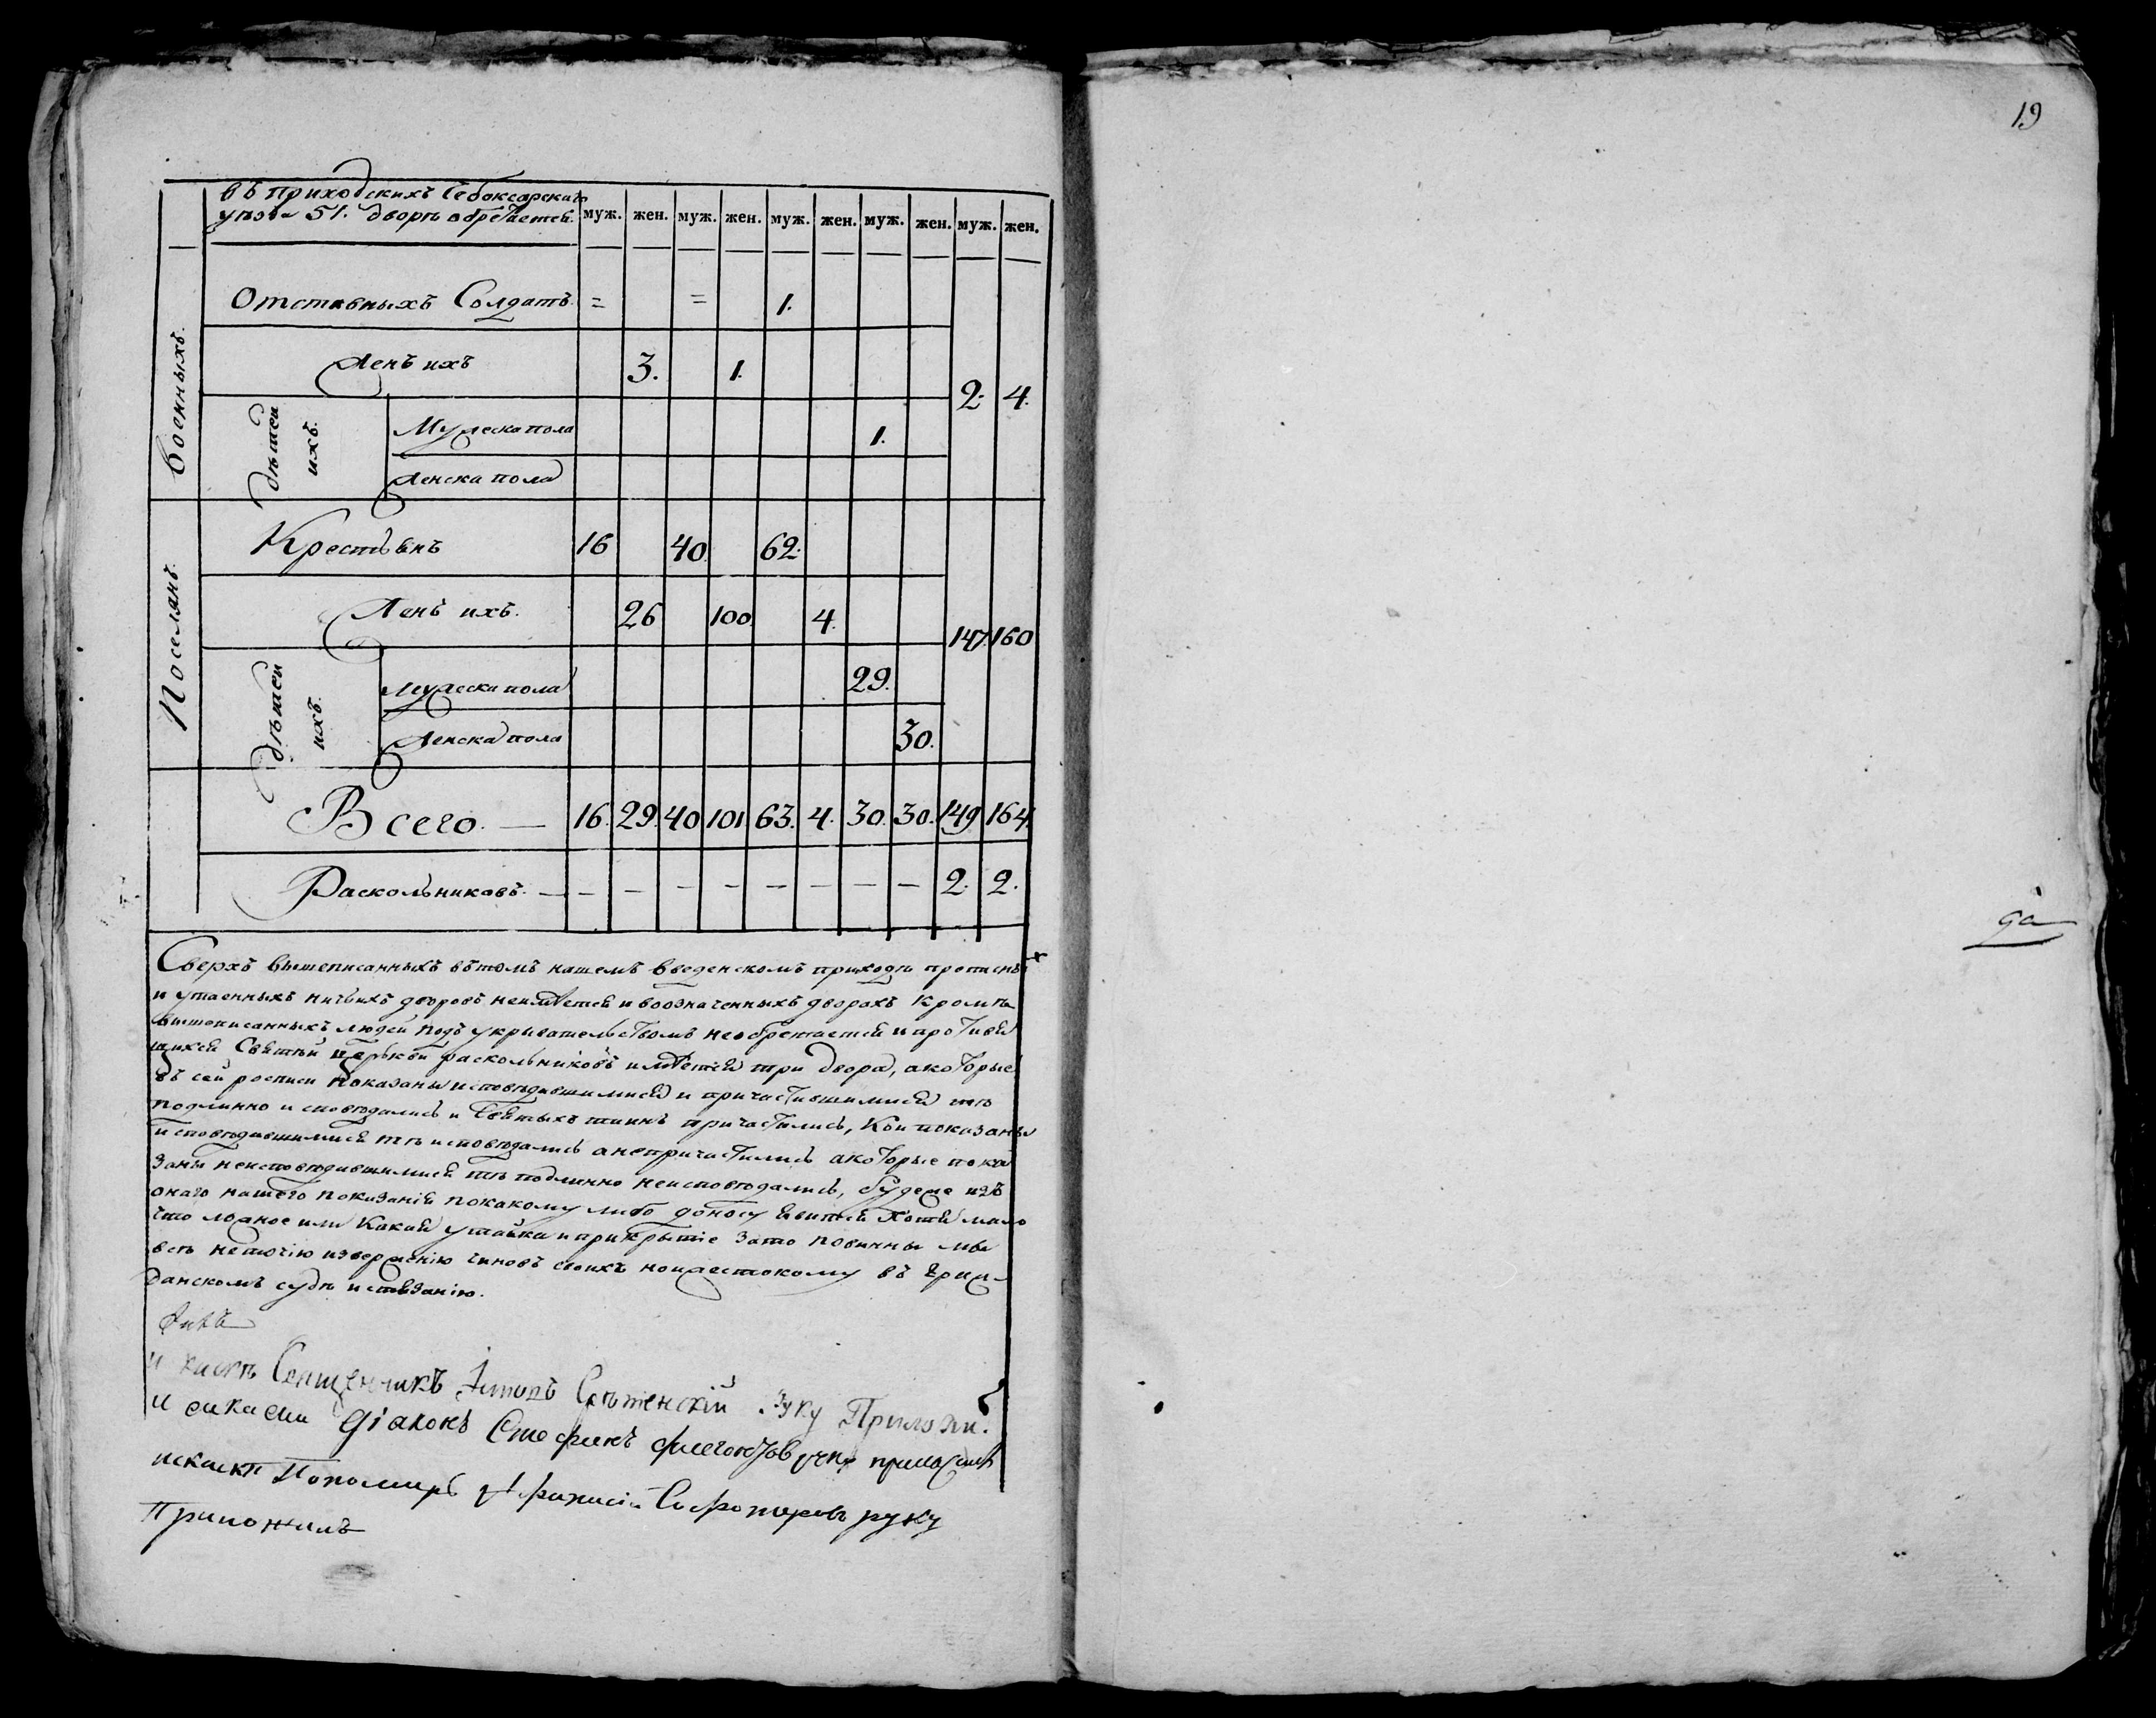 19
въ приходскихъ Чебоксарскаго
уѣзда 51. дворѣ обретается
муж. жен. муж. жен. муж. жен. муж. жен. муж. жен.
Военныхъ.
Отставныхъ Солдатъ. = = 1.
Женъ ихъ 3. 1.
2. 4.
дѣтей ихъ.
Мужеска пола 1.
Женска пола
Поселянъ.
Крестьянъ 16 40. 62.
Женъ ихъ. 26 100. 4.
147. 160
дѣтей ихъ.
мужеска пола 29.
Женска пола 30.
Всего. — 16. 29. 40 101 63. 4. 30. 30. 149 164.
Раскольниковъ. — — — — — — — — — 2. 2.
Сверхъ вышеписанныхъ вътомъ нашемъ введенскомъ приходѣ прописныхъ
и утаенныхъ ничьихъ дворовъ неимѣется и воозначенныхъ дворахъ кромѣ
вышеписанныхъ людей подъ укривательством необретается и противя
щихся Святѣй церькви раскольниковъ имѣется три двора, а которые
въ сей росписи показаны исповѣдавшимися и причастившимися тѣ
подлинно исповѣдались и Святыхъ таинъ причастились, Кои показаны
исповѣдавшимися тѣ исповѣдались а непричастились а которые пока
заны неисповѣдавшимися тѣ подлинно неисповѣдались, будеже изъ
онаго нашего показания покакому либо доносу явится хотя мало
что ложное или какая утайка и прикрытие зато повинны мы
не точію извержению чиновъ своихъ но и жестокому въ граж-
данскомъ судѣ истязанію.
Священникъ Срѣтенскій руку Приложи.
діаконъ Стефанъ руку приложилъ
Пономарь Афанасий руку
Приложилъ
да